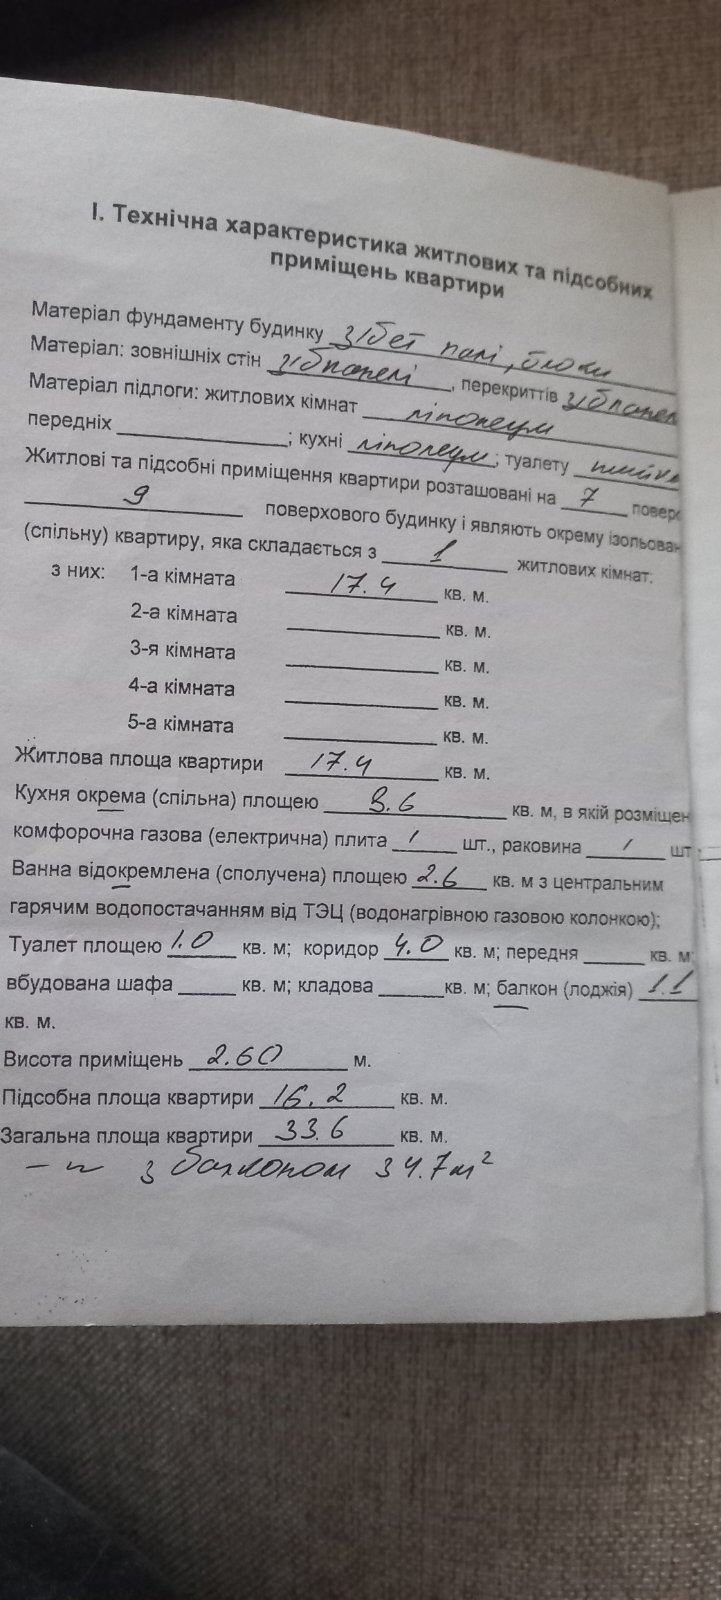 І. Технічна характеристика житлових та підсобних
приміщень квартири
Матеріал фундаменту будинку з/бет палі, блоки
Матеріал: зовнішніх стін з/бпанелі, перекриттів з/бпанел
Матеріал підлоги: житлових кімнат ліполеум
передніх ; кухні ліполеум; туалету
Житлові та підсобні приміщення квартири розташовані на 7 поверс
9 поверхового будинку і являють окрему ізольован
(спільну) квартиру, яка складається з 1 житлових кімнат:
з них: 1-а кімната 17.4 кв. м.
2-а кімната кв. м.
3-я кімната кв. м.
4-а кімната кв. м.
5-а кімната кв. м.
Житлова площа квартири 17.4 кв. м.
Кухня окрема (спільна) площею 8.6 кв. м, в якій розміщен
комфорочна газова (електрична) плита 1 шт., раковина 1 шт
Ванна відокремлена (сполучена) площею 2.6 кв. м з центральним
гарячим водопостачанням від ТЭЦ (водонагрівною газовою колонкою);
Туалет площею 1.0 кв. м; коридор 4.0 кв. м; передня кв. м
вбудована шафа кв. м; кладова кв. м; балкон (лоджія) 1.1
кв. м.
Висота приміщень 2.60 м.
Підсобна площа квартири 16.2 кв. м.
Загальна площа квартири 33.6 кв. м.
— „ — з балконом 34.7 м²